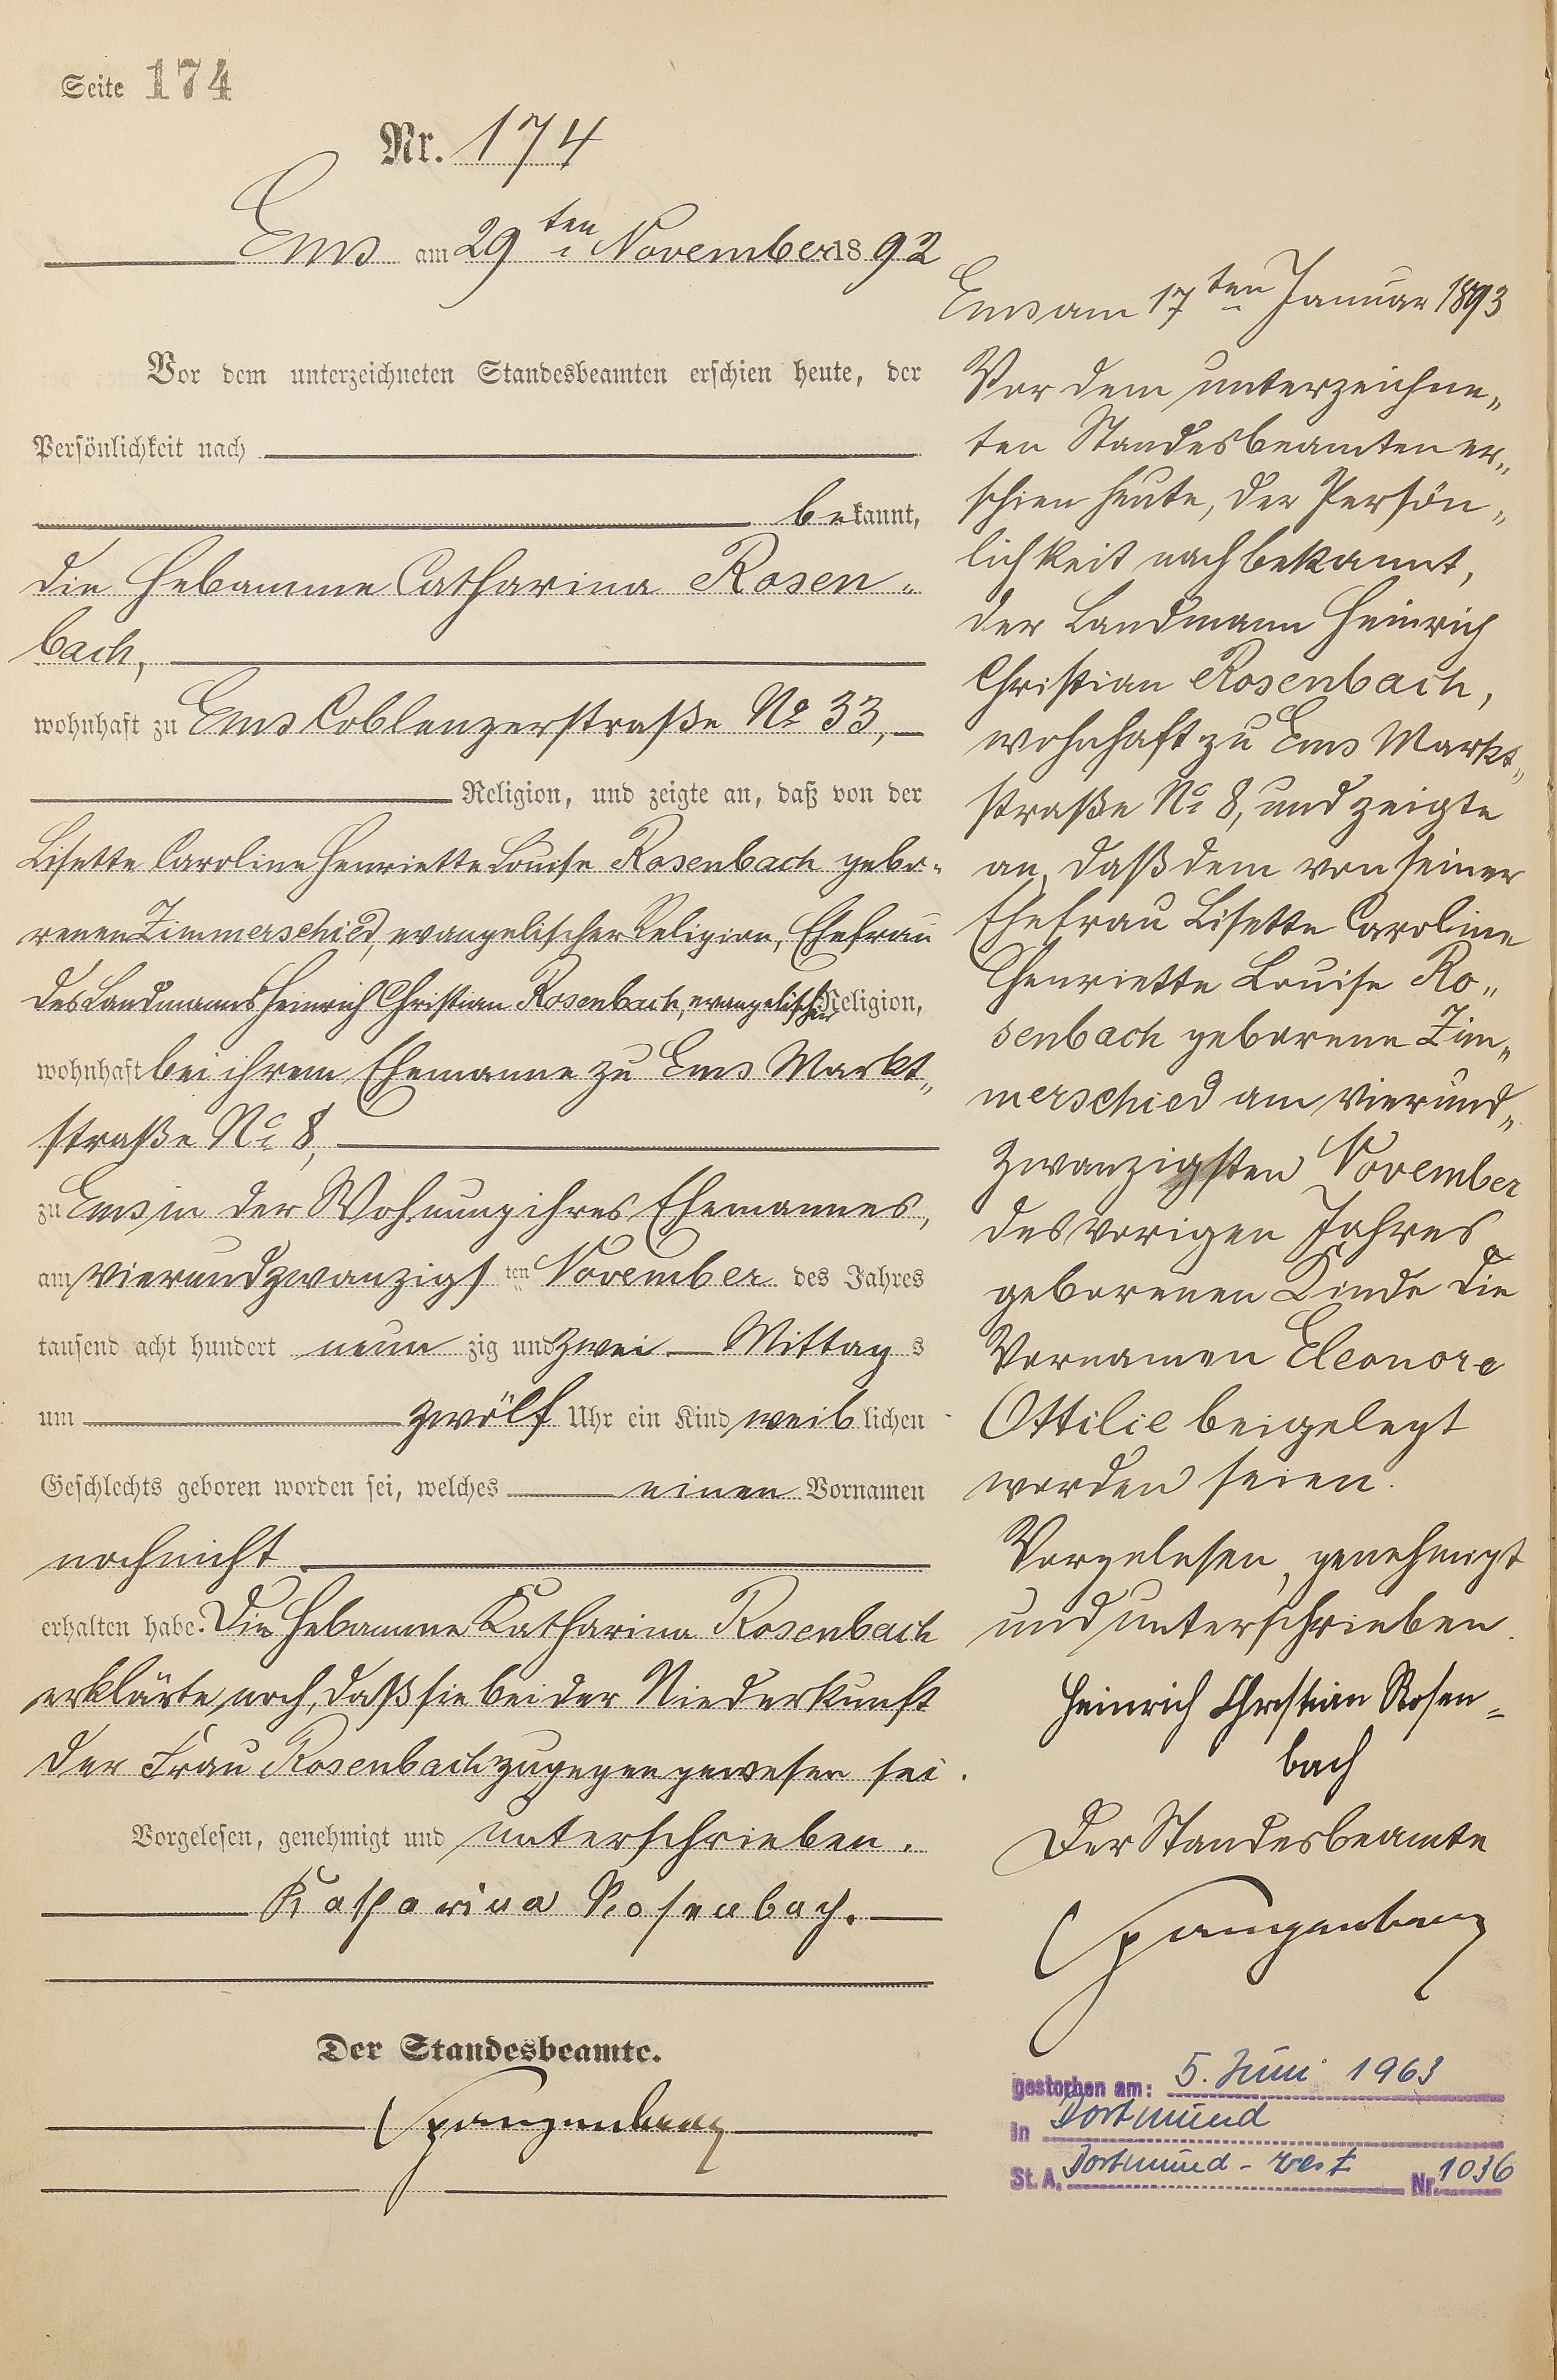 Seite 174
Nr. 174
Ems am 29ten November 1892
Vor dem unterzeichneten Standesbeamten erschien heute, der
Persönlichkeit nach
bekannt,
die Hebamme Catharina Rosen-
bach,
wohnhaft zu Ems Coblenzerstraße No 33,
Religion, und zeigte an, daß von der
Lisette Caroline Henriette Louise Rosenbach gebo-
renen Zimmerschied, evangelischer Religion, Ehefrau
des Landmanns Heinrich Christian Rosenbach, evangelischer Religion,
wohnhaft bei ihrem Ehemanne zu Ems Markt-
straße No 8,
zu Ems in der Wohnung ihres Ehemannes,
am vierundzwanzigsten November des Jahres
tausend acht hundert neunzig und zwei Mittags
um zwölf Uhr ein Kind weiblichen
Geschlechts geboren worden sei, welches einen Vornamen
noch nicht
erhalten habe. Die Hebamme Katharina Rosenbach
erklärte noch, daß sie bei der Niederkunft
der Frau Rosenbach zugegen gewesen sei.
Vorgelesen, genehmigt und unterschrieben.
Katharina Rosenbach.
Der Standesbeamte.
Spangenberg
Ems am 17ten Januar 1893
Vor dem unterzeichne-
ten Standesbeamten er-
schien heute, der Persön-
lichkeit nach bekannt,
der Landmann Heinrich
Christian Rosenbach,
wohnhaft zu Ems Markt-
straße No 8, und zeigte
an, daß dem von seiner
Ehefrau Lisette Caroline
Henriette Louise Ro-
senbach geborene Zim-
merschied am vierund-
zwanzigsten November
des vorigen Jahres
geborenen Kinde die
Vornamen Eleonore
Ottilie beigelegt
worden seien.
Vorgelesen, genehmigt
und unterschrieben.
Heinrich Christian Rosen-
bach
Der Standesbeamte
Spangenberg
gestorben am: 5. Juni 1963
in Dortmund
St. A. Dortmund-West Nr. 1036